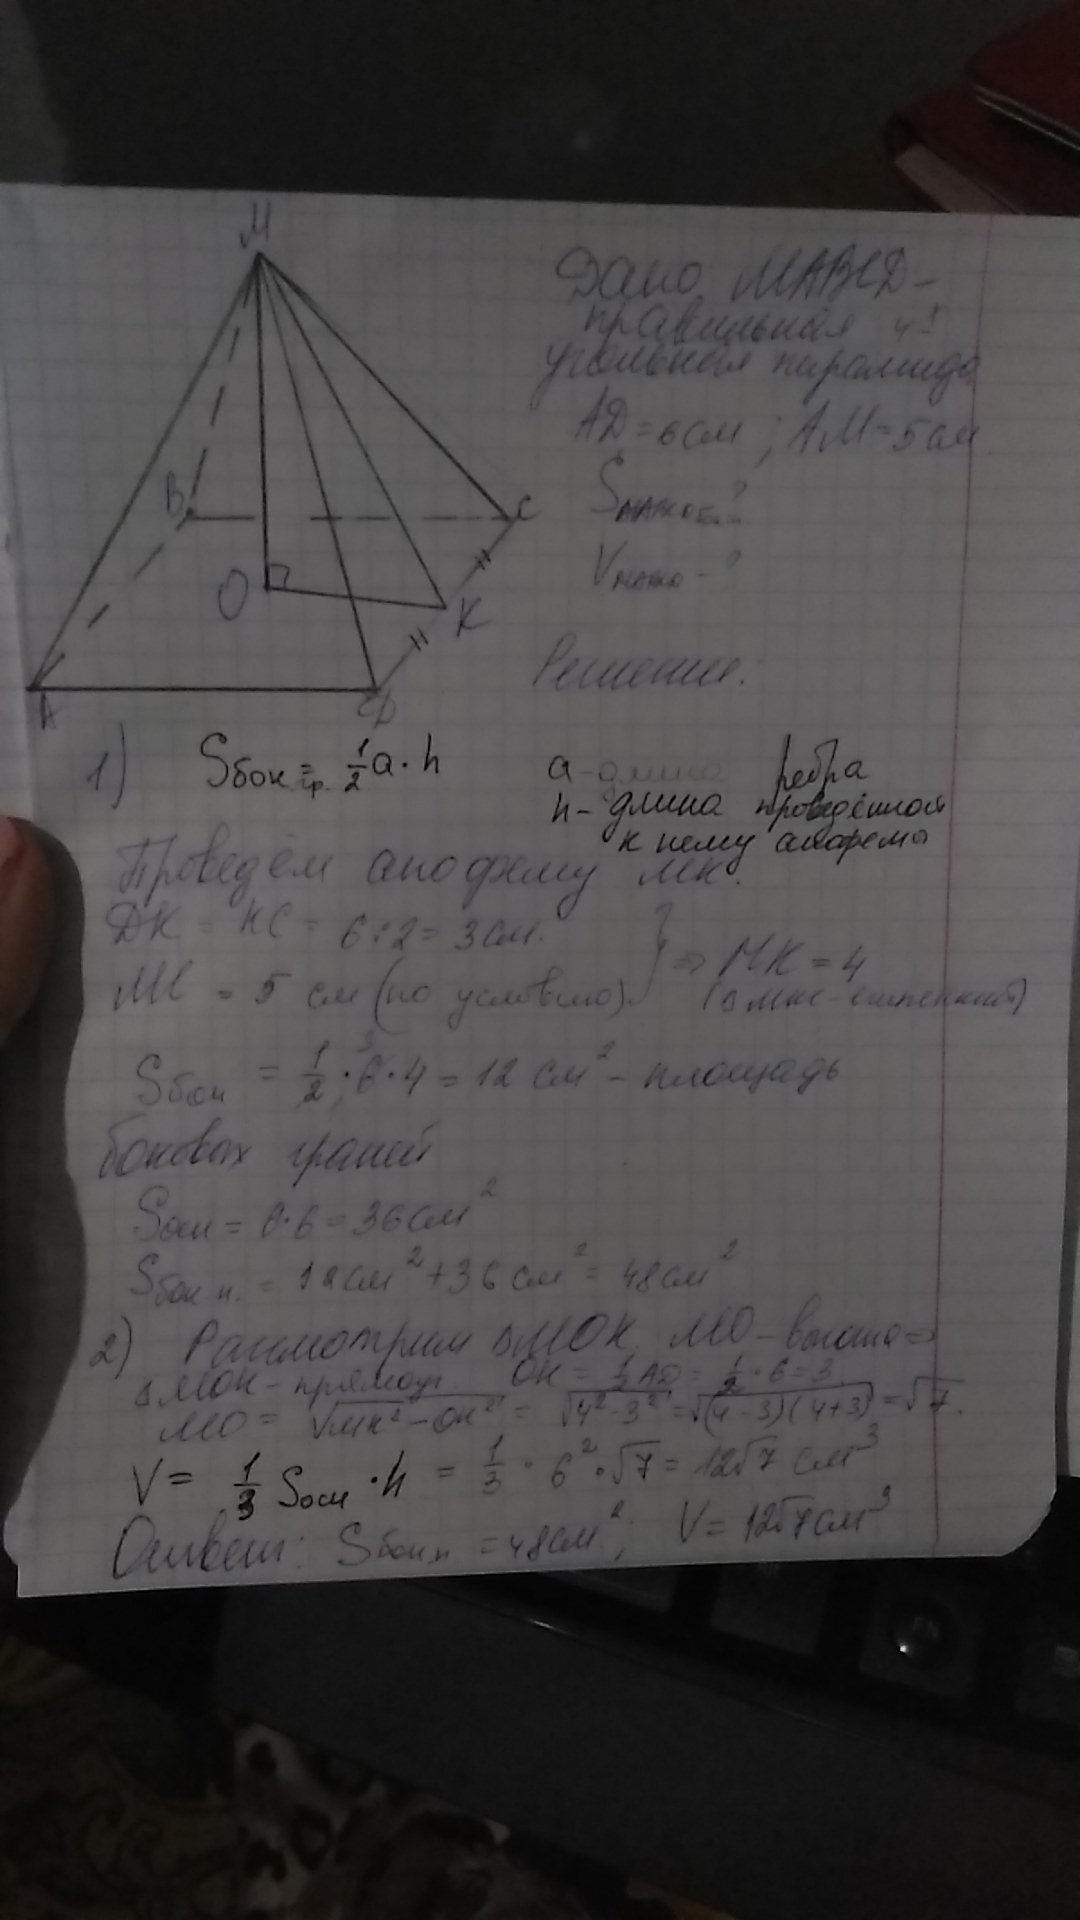 M
B
C
O
K
A
D
Дано MABCD -
правильная 4х
угольная пирамида
AD = 6 см ; AM = 5 см
S
V
Решение:
1) Sбок.гр. = 1/2 a · h
a - длина ребра
h - длина проведённой
к нему апофемы
Проведём апофему MK.
DK = KC = 6 : 2 = 3 см.
MC = 5 см (по условию). } => MK = 4
(Δ MKC - египетский)
Sбок = 1/2 · 6 · 4 = 12 см² - площадь
боковых граней
Sосн = 6 · 6 = 36 см²
Sбок п. = 12 см² + 36 см² = 48 см²
2) Рассмотрим Δ MOK, MO - высота =>
Δ MOK - прямоуг. OK = 1/2 AD = 1/2 · 6 = 3
MO = √(MK² - OK²) = √(4² - 3²) = √((4 - 3)(4 + 3)) = √7.
V = 1/3 Sосн · h = 1/3 · 6² · √7 = 12√7 см³
Ответ: Sбок.п = 48 см² ; V = 12√7 см³